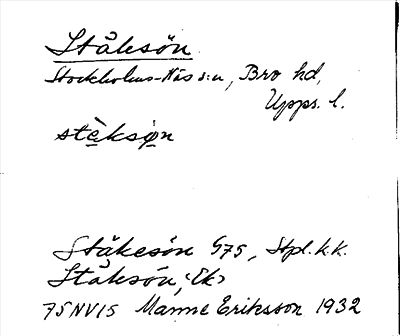 Stäksön
Stockholms-Näs s:n, Bro hd,
Upps. l.
stèksøn
Stäkesön G75, Stpl. k.k.
Stäksön, ‹Ek›
75NV15 Manne Eriksson 1932